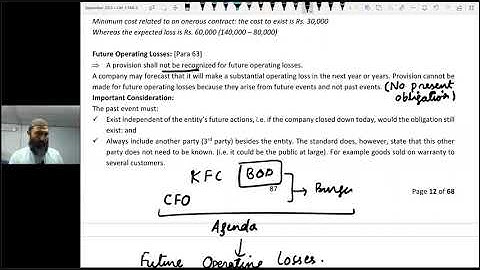 Minimum cost related to an onerous contract: the cost to exist is Rs. 30,000
Whereas the expected loss is Rs. 60,000 (140,000 – 80,000)
Future Operating Losses: [Para 63]
⇒ A provision shall not be recognized for future operating losses.
A company may forecast that it will make a substantial operating loss in the next year or years. Provision cannot be
made for future operating losses because they arise from future events and not past events. (No present
obligation)
Important Consideration:
The past event must:
✓ Exist independent of the entity's future actions, i.e. if the company closed down today, would the obligation still
exist: and
✓ Always include another party (3rd party) besides the entity. The standard does, however, state that this other
party does not need to be known. (i.e. it could be the public at large). For example goods sold on warranty to
several customers.
KFC BOD Burger
87
Page 12 of 68
CFO
Agenda
Future Operating Losses.